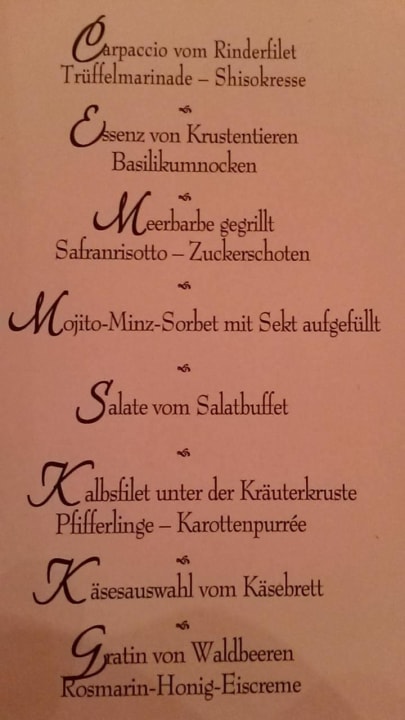 Carpaccio vom Rinderfilet
Trüffelmarinade – Shisokresse
Essenz von Krustentieren
Basilikumnocken
Meerbarbe gegrillt
Safranrisotto – Zuckerschoten
Mojito-Minz-Sorbet mit Sekt aufgefüllt
Salate vom Salatbuffet
Kalbsfilet unter der Kräuterkruste
Pfifferlinge – Karottenpurrée
Käsesauswahl vom Käsebrett
Gratin von Waldbeeren
Rosmarin-Honig-Eiscreme